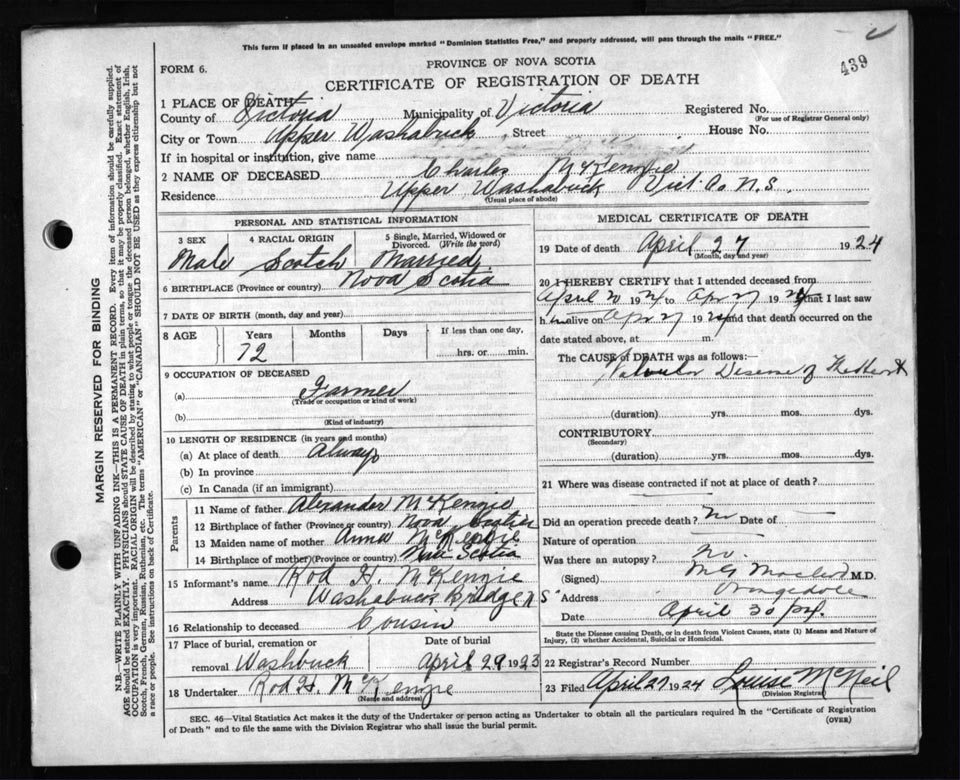 This form if placed in an unsealed envelope marked "Dominion Statistics Free," and properly addressed, will pass through the mails "FREE."
439
PROVINCE OF NOVA SCOTIA
FORM 6.
CERTIFICATE OF REGISTRATION OF DEATH
1 PLACE OF DEATH—
County of Victoria Municipality of Victoria Registered No.
(For use of Registrar General only)
City or Town Upper Washabuck Street House No.
If in hospital or institution, give name
2 NAME OF DECEASED Charles McKenzie
Residence Upper Washabuck Vict. Co N.S.
(Usual place of abode)
PERSONAL AND STATISTICAL INFORMATION
3 SEX 4 RACIAL ORIGIN 5 Single, Married, Widowed or Divorced. (Write the word)
Male Scotch Married
6 BIRTHPLACE (Province or country) Nova Scotia
7 DATE OF BIRTH (month, day and year)
8 AGE Years Months Days If less than one day,
72 hrs. or min.
9 OCCUPATION OF DECEASED
(a) Farmer
(Trade or occupation or kind of work)
(b)
(Kind of industry)
10 LENGTH OF RESIDENCE (in years and months)
(a) At place of death Always
(b) In province
(c) In Canada (if an immigrant)
Parents
11 Name of father Alexander McKenzie
12 Birthplace of father (Province or country) Nova Scotia
13 Maiden name of mother Anna McKenzie
14 Birthplace of mother (Province or country) Nova Scotia
15 Informant's name Rod H. McKenzie
Address Washabuck Bridge N S
16 Relationship to deceased Cousin
17 Place of burial, cremation or Date of burial
removal Washbuck April 29 1923
18 Undertaker Rod H. McKenzie
(Name and address)
MEDICAL CERTIFICATE OF DEATH
19 Date of death April 27 1924
(Month, day and year)
20 I HEREBY CERTIFY that I attended deceased from
April 20 1924 to Apr 27 1924 that I last saw
h im alive on Apr 27 1924 and that death occurred on
date stated above, at m.
The CAUSE of DEATH was as follows:—
Valvular Disease of the Heart
(duration) yrs. mos. dys.
CONTRIBUTORY
(Secondary)
(duration) yrs. mos. dys.
21 Where was disease contracted if not at place of death?
Did an operation precede death? No Date of —
Nature of operation
Was there an autopsy? No.
(Signed) MacLeod M.D.
" Address Orangedale
Date April 30
State the Disease causing Death, or in death from Violent Causes, state (1) Means and Nature of
Injury, (2) whether Accidental, Suicidal or Homicidal.
22 Registrar's Record Number
23 Filed April 27 1924 Louise McNeil
(Division Registrar)
SEC. 46—Vital Statistics Act makes it the duty of the Undertaker or person acting as Undertaker to obtain all the particulars required in the "Certificate of Registration
of Death" and to file the same with the Division Registrar who shall issue the burial permit.
(OVER)
MARGIN RESERVED FOR BINDING
N.B.—WRITE PLAINLY WITH UNFADING INK—THIS IS A PERMANENT RECORD. Every item of information should be carefully supplied.
AGE should be stated EXACTLY. PHYSICIANS should STATE CAUSE OF DEATH in plain terms, so that it may be properly classified. Exact statement of
OCCUPATION is very important. RACIAL ORIGIN will be described by stating to what people or tongue the deceased person belonged, whether English, Irish,
Scotch, French, German, Russian, Ruthenian, etc. The terms "AMERICAN" or "CANADIAN" SHOULD NOT BE USED as they express citizenship but not
a race or people. See instructions on back of Certificate.